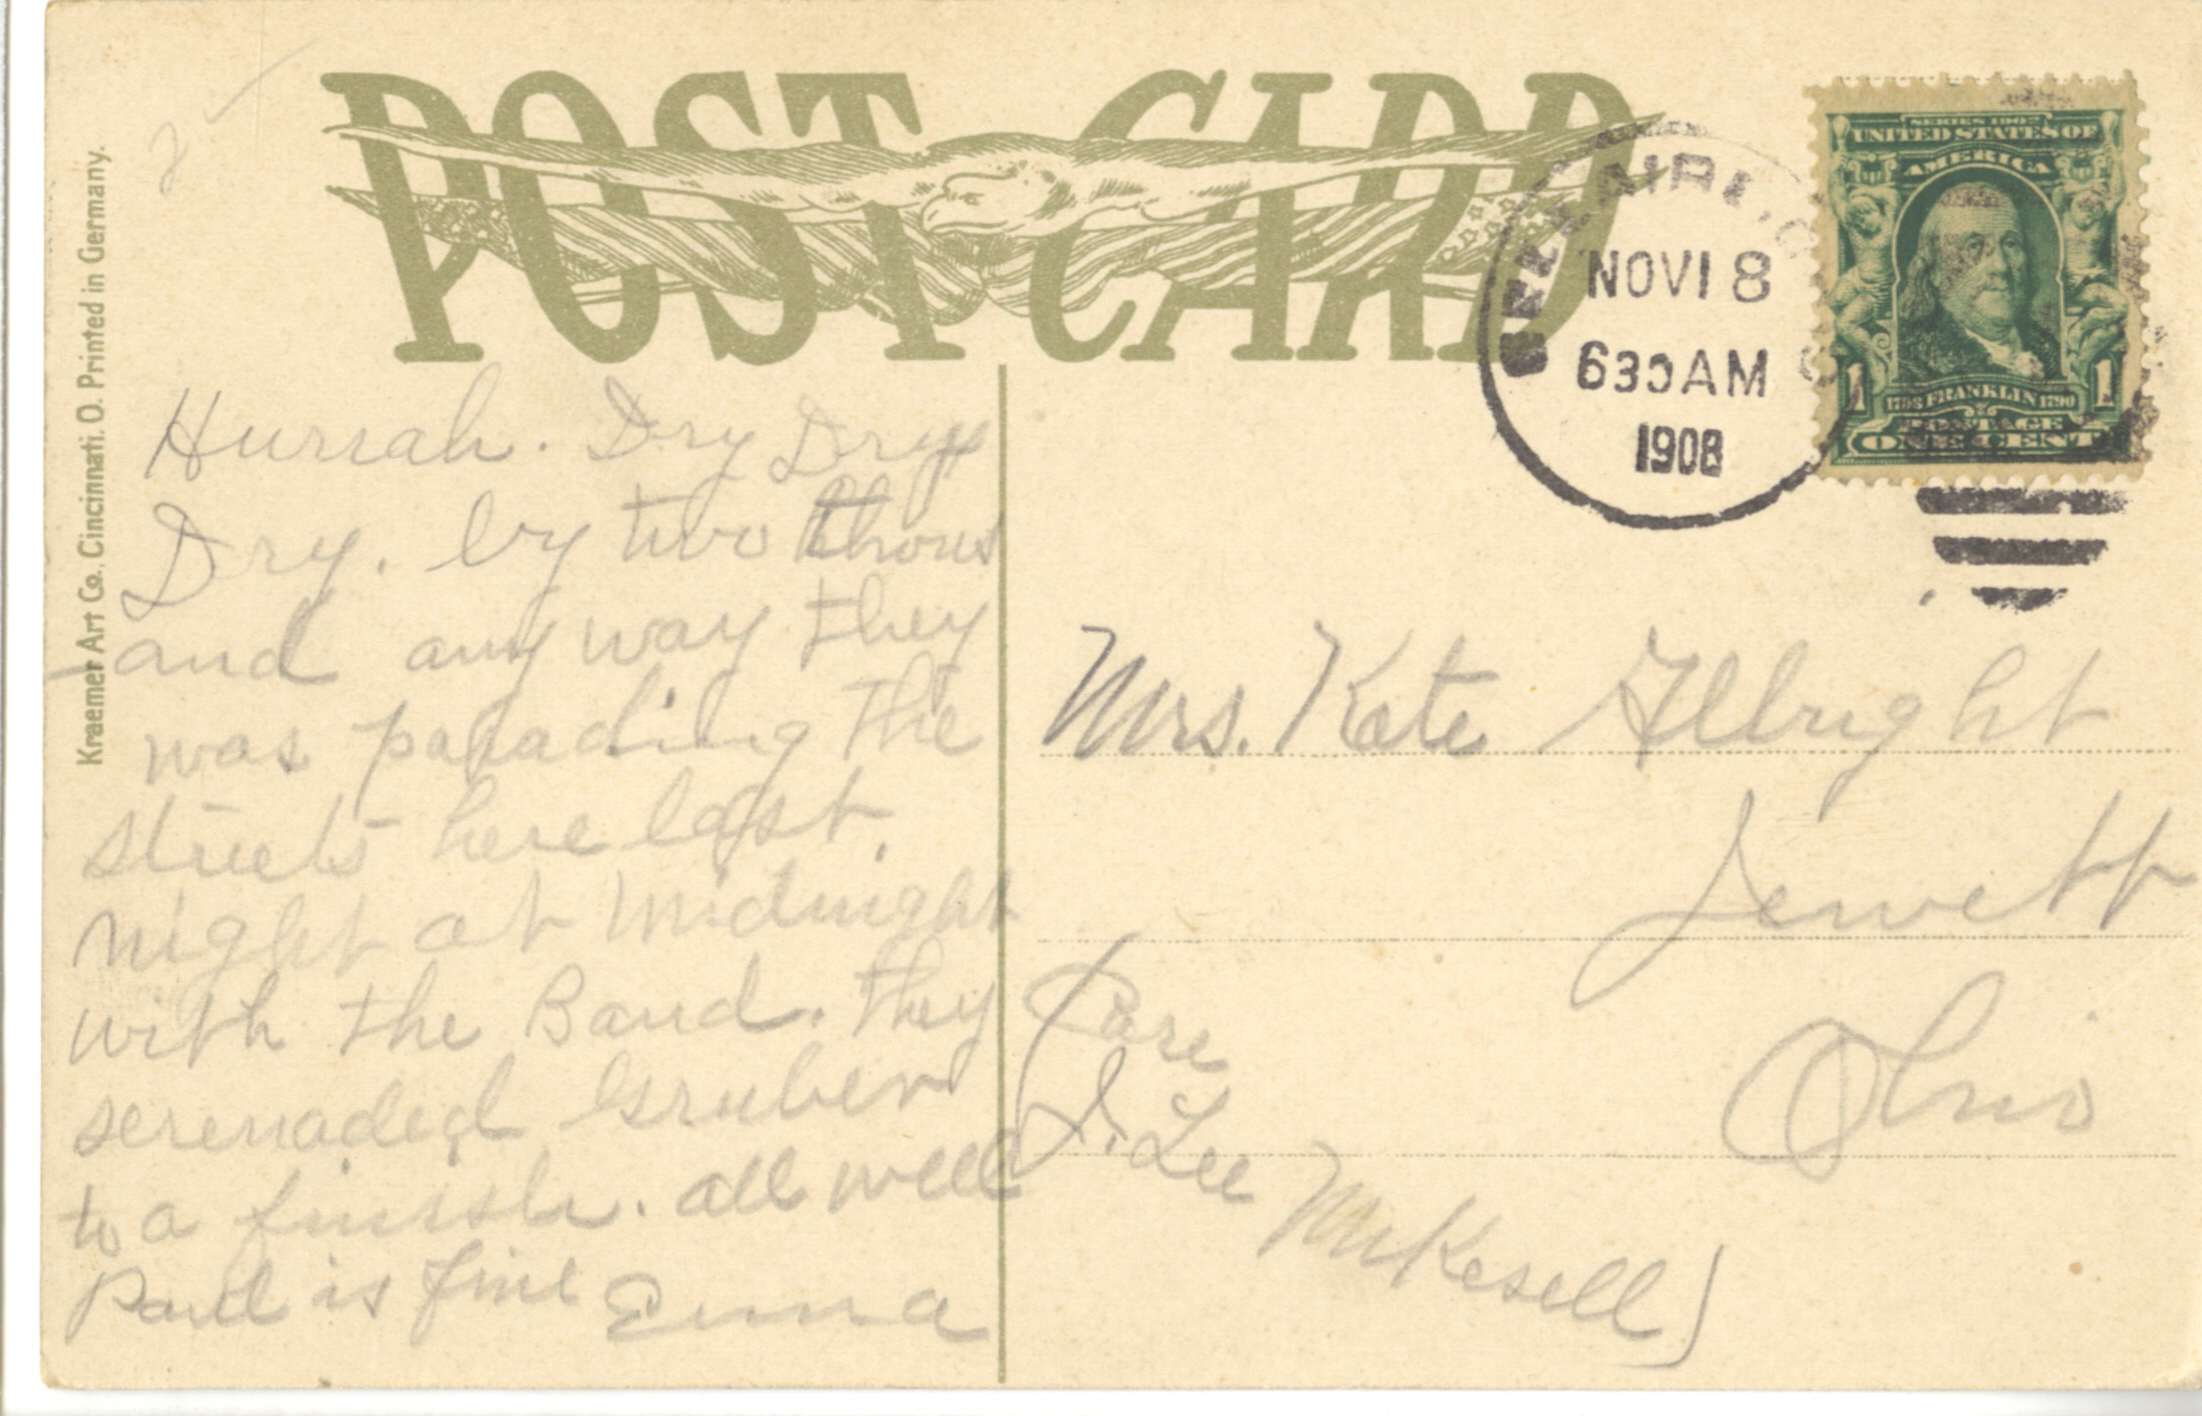 POST CARD
Kraemer Art Co., Cincinnati, O. Printed in Germany.
2
BELLAIRE, O
NOV 18
630 AM
1908
SERIES 1902
UNITED STATES OF
AMERICA
1706 FRANKLIN 1790
POSTAGE
ONE CENT
1 1
Hurrah. Dry Drys
Dry. by two thous
and any way they
was parading the
streets here last
night at midnight
with the Band. they
serenaded Gruber
to a finish. all well
Paul is fine Emma
Mrs. Kate Albright
Jewett
Ohio
(Care
J. Lee
McKesell)